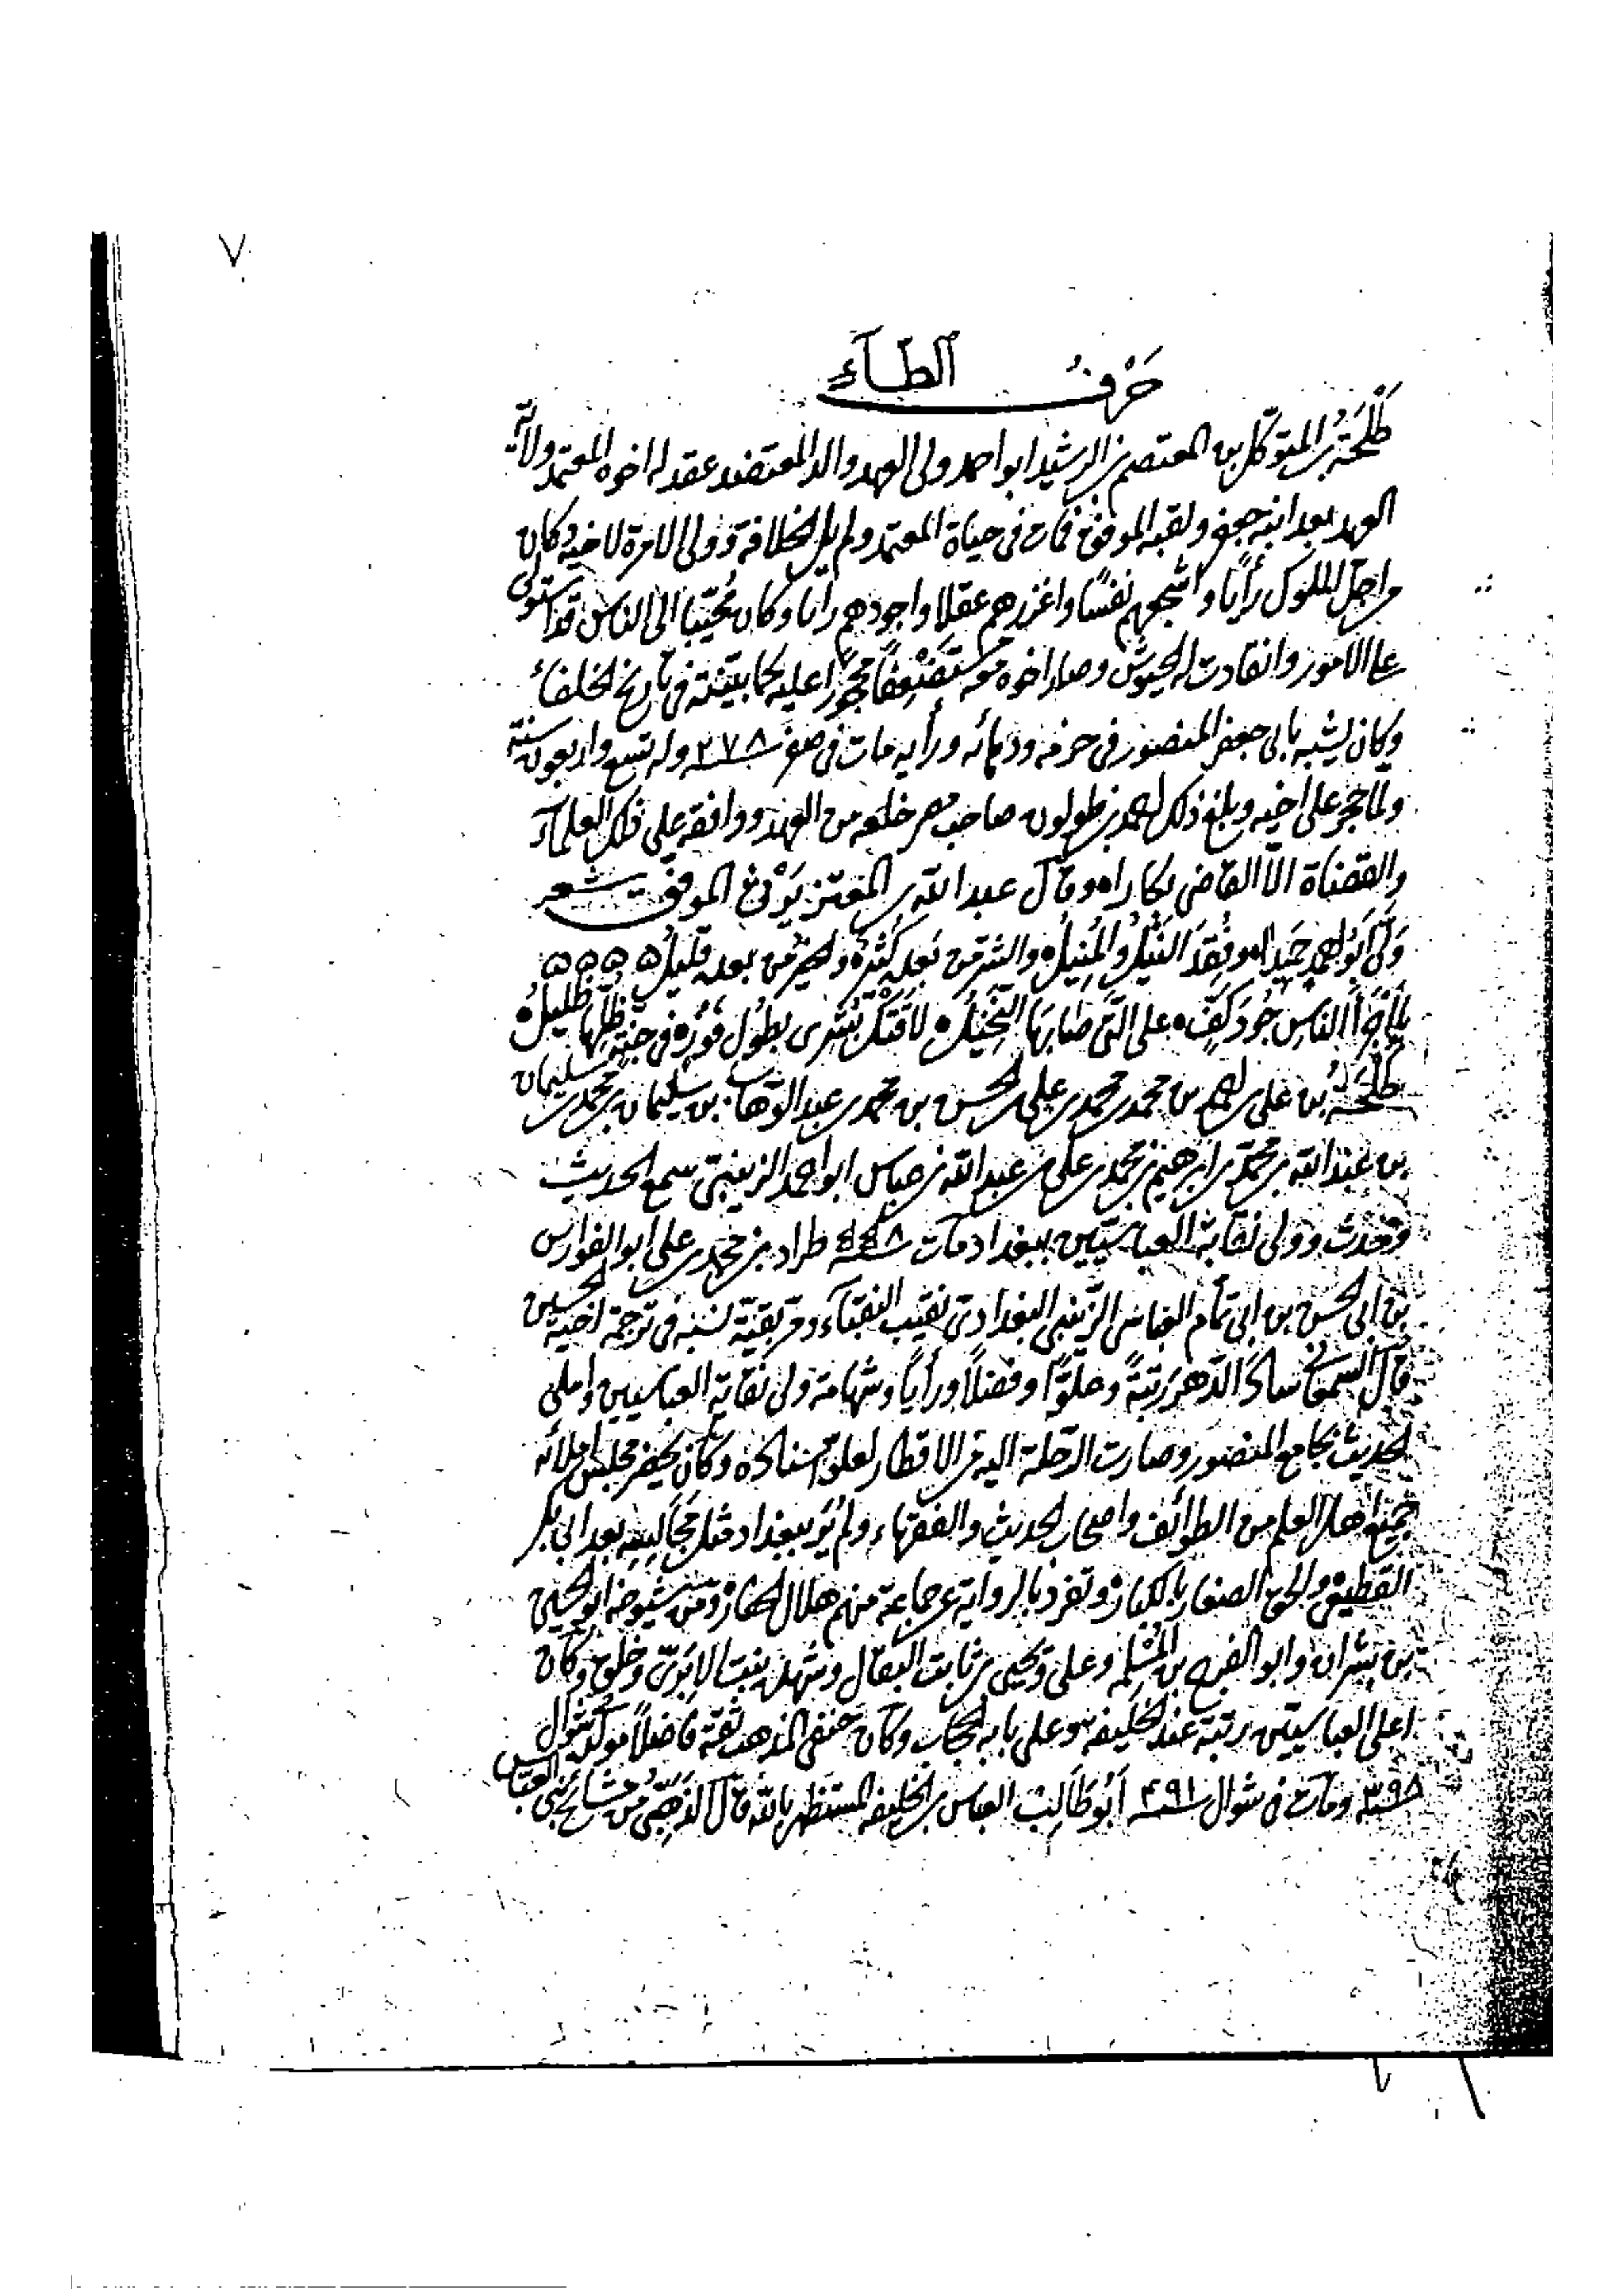 ٧
حَرْفُ الطَّآءِ
طَلْحَةُ بن المتوكل بن المعتصم بن الرشيد ابو احمد ولى العهد والد المعتضد عقد له اخوه المعتمد ولاية
العهد بعد ابنه جعفر ولقبه الموفق فمات فى حياة المعتمد ولم يل الخلافة وولى الامرة لاخيه وكان
من اجل الملوك رأيًا واشجعهم نفسًا واغزرهم عقلا واجودهم رأيا وكان محببا الى الناس قد استولى
على الامور وانقادت له الجيوش وصار اخوه معه مستضعفًا محجورًا عليه كما بينته فى تاريخ الخلفاء
وكان يشبه بابى جعفر المنصور فى حزمه ودهائه ورأيه مات فى صفر سنة ٢٧٨ وله تسع واربعون سنة
ولما حجر على اخيه وبلغ ذلك احمد بن طولون صاحب مصر خلعه من العهد ووافقه على ذلك العلمآء
والقضاة الا القاضى بكارا وقال عبد الله بن المعتز يرثى الموفق شعر
وَلَّى ابو احمد حميدا وفقد النيل والمنيل والشر من بعده كثير والخير من بعده قليل
الناس جود كف على التى البخيل بطول فوزه فى جنة ظلها ظليل
طلحة بن على بن احمد بن محمد بن محمد بن على بن الحسن بن محمد بن عبد الوهاب بن سليمان بن محمد بن سليمان
بن عبد الله بن محمد بن ابرهيم بن محمد بن على بن عبد الله بن عباس ابو احمد الزينبى سمع الحديث
وتحدث وولى نقابة العباسيين ببغداد مات سنة طراد بن محمد بن على ابو الفوارس
بن ابى الحسن بن ابى تمام الهاشمى الزينبى البغدادى نقيب النقباء ومر بقية نسبه فى ترجمة اخيه الحسين
قال السمعانى ساد الدهر رتبةً وعلوًا وفضلاً ورأيًا وشهامة ولى نقابة العباسيين واملى
الحديث بجامع المنصور وصارت الرحلة اليه من الاقطار لعلو اسناده وكان يحضر مجلس املائه
جميع اهل العلم من الطوائف واصحاب الحديث والفقهاء ولم يُر ببغداد مثل مجالسه بعد ابى بكر
القطيعى والحق الصغار بالكبار وتفرد بالرواية عن جماعة منهم هلال الحفار ومن شيوخه ابو الحسين
بن بشران وابو الفرج بن المسلمة وعلى ويحيى بن ثابت البقال وشهدة بنت الابرى وخلق وكان
اعلى العباسيين رتبة عند الخليفة وعلى بابه الحجاب وكان حنفى المذهب ثقة فاضلاً مولده شوال
سنة ٣٩٨ ومات فى شوال سنة ٤٩١ ابو طالب العباس بن الخليفة المستظهر بالله قال الذهبى من مشايخ بنى العباس